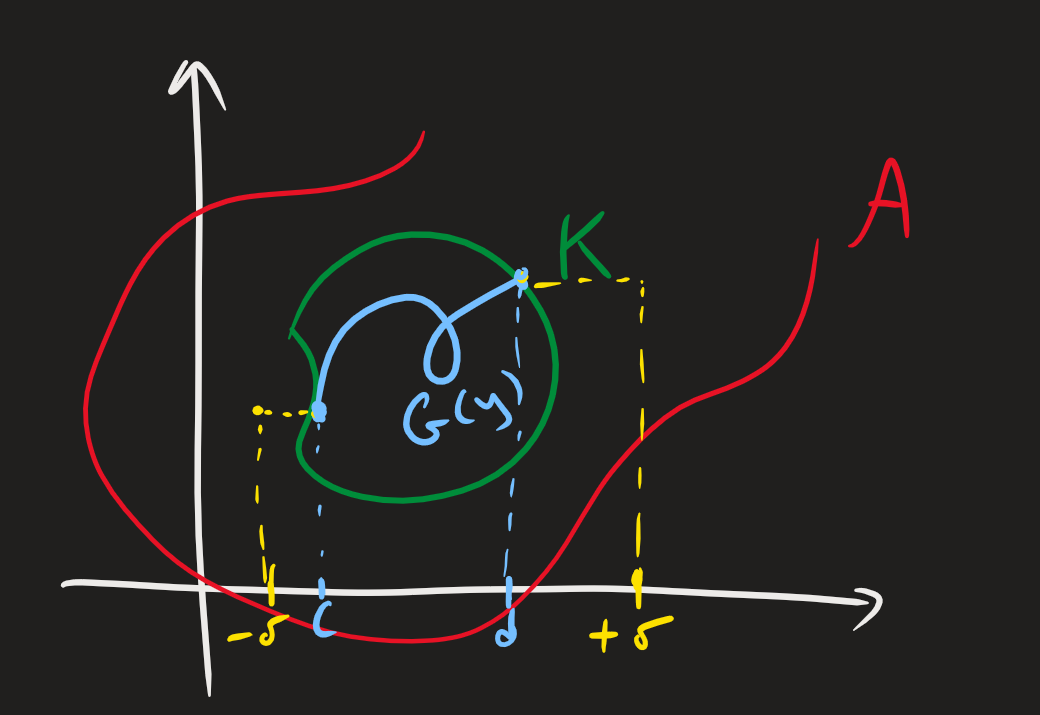 A
K
G(y)
-δ c d +δ